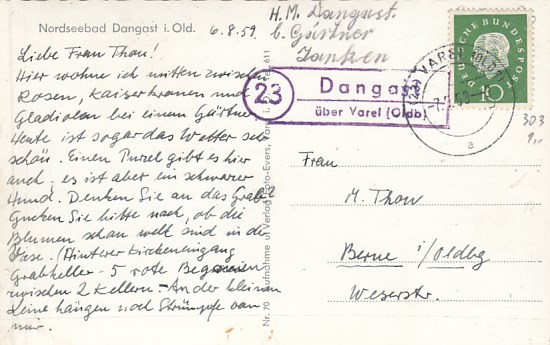 Nordseebad Dangast i.Old.
6.8.59
H. M. Dangast.
b. Gärtner
Liebe Frau Thou!
Hier wohne ich mitten zwischen
Rosen, Kaiserkronen und
Gladiolen bei einem Gärtner
Heute ist sogar das Wetter sehr
schön. Einen Purzel gibt es hier
auch, es ist aber ein schwarzer
Hund. Denken Sie an das Grab?
Gucken Sie bitte nach, ob die
Blumen schon welk sind in der
Vase. (Hinterer Kircheneingang
Grabkeller - 5 rote Begonien
zwischen 2 Kellern. An der kleinen
Leine hängen noch Strümpfe von
mir.
23
Dangast
über Varel (Oldb)
VAREL (OLDB)
a
DEUTSCHE BUNDESPOST
10
303
9,-
Frau
M. Thou
Berne i/Oldbg
Weserstr.
Nr. 70